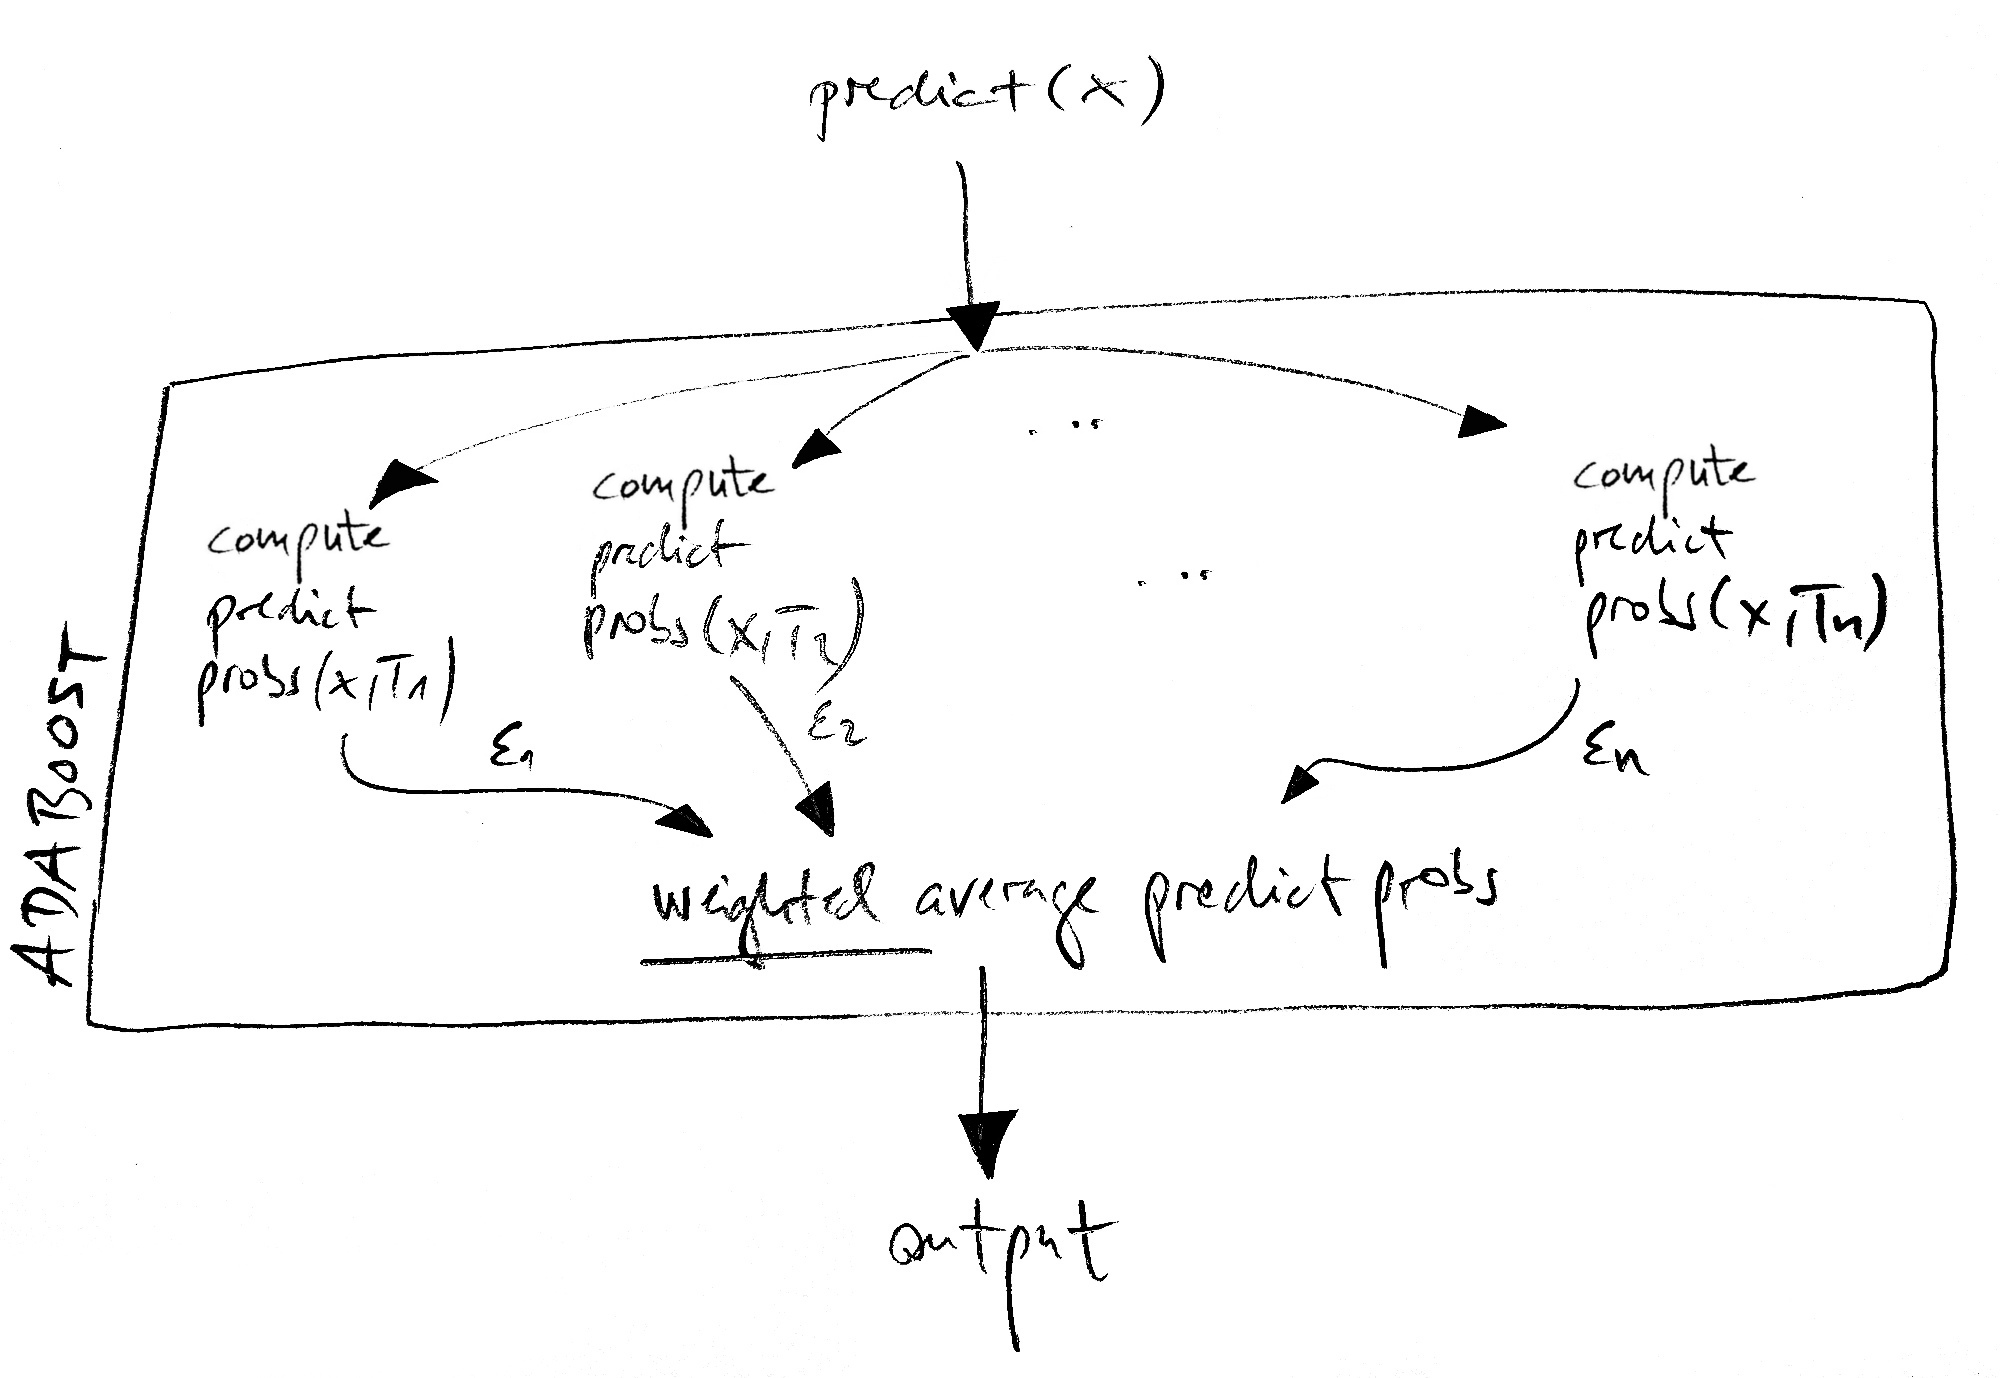 predict(x)
...
compute
predict
probs(x,T1)
compute
predict
probs(x,T2)
...
compute
predict
probs(x,Tn)
ε1
ε2
εn
weighted average predict probs
ADABOOST
output